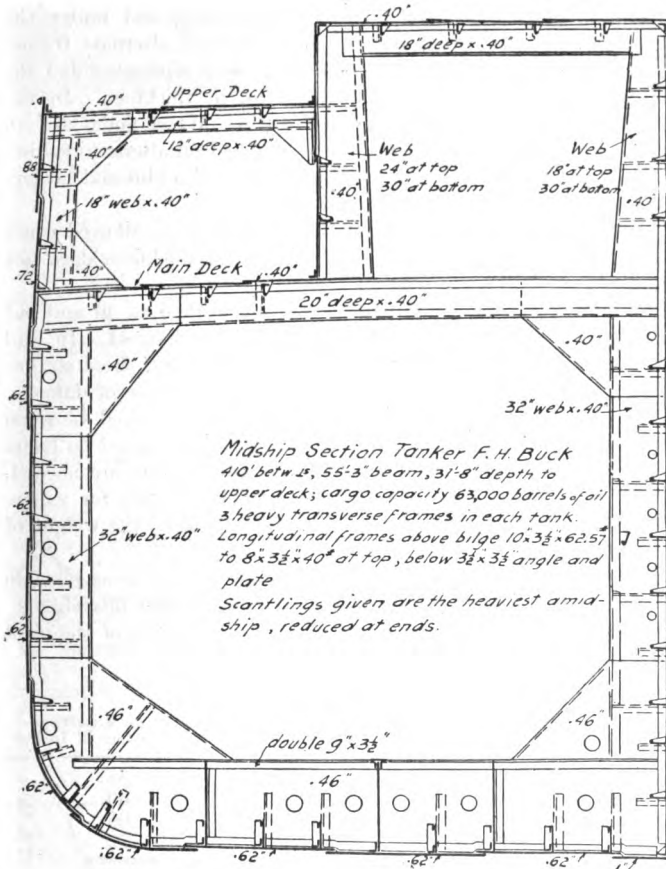 .40"
18" deep x .40"
.40"
Upper Deck
.40"
12" deep x .40"
.40"
Web
24" at top
30" at bottom
Web
18" at top
30" at bottom
.88
18" web x .40"
.40"
.40"
.40"
.72
Main Deck
.40"
20" deep x .40"
.40"
.40"
.62"
32" web x .40"
Midship Section Tanker F. H. Buck
410' betw. 55'-3" beam, 31'-8" depth to
upper deck; cargo capacity 63,000 barrels of oil
3 heavy transverse frames in each tank.
Longitudinal frames above bilge 10" x 3½" x 62.57#
to 8" x 3½" x 40# at top, below 3½" x 3½" angle and
plate
Scantlings given are the heaviest amid-
ship, reduced at ends.
.62
32" web x .40"
.62"
.46"
.46"
double 9" x 3½"
.46"
.62"
.62"
.62"
.62"
.62"